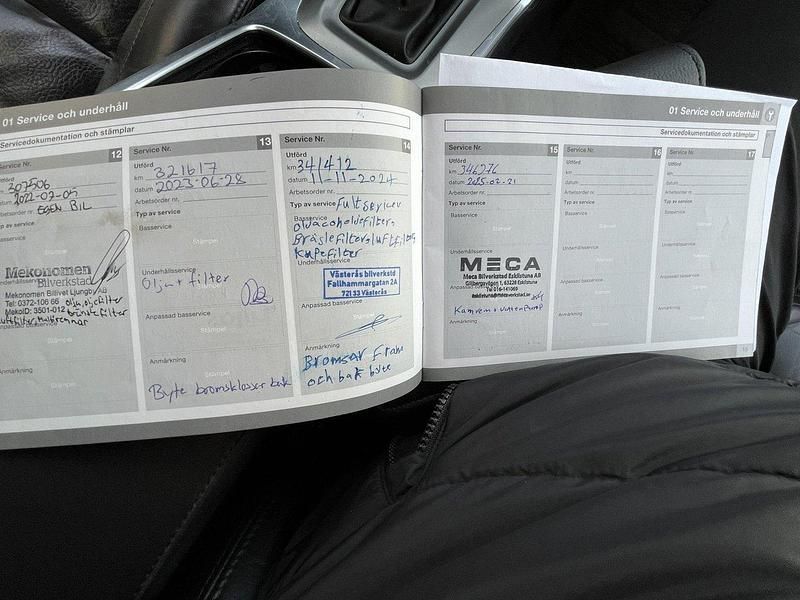 01 Service och underhåll
Servicedokumentation och stämplar
Service Nr. 12
km 307506
datum 2022-02-05
Arbetsorder nr. EGEN BIL
Typ av service
Basservice
Stämpel
Mekonomen
Bilverkstad
Mekonomen Billivet Ljungby AB
Tel: 0372-106 66 olja, oljefilter
MekoID: 3501-012 bränslefilter
Anpassad basservice
Anmärkning
Stämpel
Service Nr. 13
Utförd
km 321617
datum 2023-06-28
Arbetsorder nr.
Typ av service
Basservice
Stämpel
Underhållsservice
Olja + filter
Anpassad basservice
Stämpel
Anmärkning
Stämpel
Byte bromsklosser bak
Service Nr. 14
Utförd
km 341412
datum 11-11-2024
Arbetsorder nr.
Typ av service full service
Basservice
Bränslefilter luftfilter
Kupefilter
Underhållsservice
Västerås bilverkstd
Fallhammargatan 2A
721 33 Västerås
Anpassad basservice
Anmärkning
Bromsar Fram
och bak byte
01 Service och underhåll
Servicedokumentation och stämplar
Service Nr. 15
Utförd
km 346276
datum 2025-02-21
Arbetsorder nr.
Typ av service
Basservice
Stämpel
Underhållsservice
MECA
Meca Bilverkstad Eskilstuna AB
Gillbergavägen 1, 632 28 Eskilstuna
Tel 016-141069
Anpassad basservice
Kamrem + vattenpump
Anmärkning
Stämpel
Service Nr. 16
Utförd
km
datum
Arbetsorder nr.
Typ av service
Basservice
Stämpel
Underhållsservice
Stämpel
Anpassad basservice
Stämpel
Anmärkning
Stämpel
Service Nr. 17
Utförd
km
datum
Arbetsorder nr.
Typ av service
Basservice
Stämpel
Underhållsservice
Stämpel
Anpassad basservice
Stämpel
Anmärkning
Stämpel